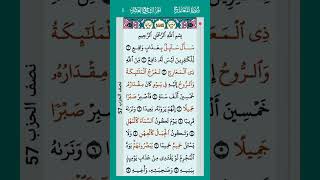 بِسْمِ اللَّهِ الرَّحْمَٰنِ الرَّحِيمِ
سَأَلَ سَائِلٌ بِعَذَابٍ وَاقِعٍ ١
لِلْكَافِرِينَ لَيْسَ لَهُ دَافِعٌ ٢ مِنَ اللَّهِ
ذِي الْمَعَارِجِ ٣ تَعْرُجُ الْمَلَائِكَةُ
وَالرُّوحُ إِلَيْهِ فِي يَوْمٍ كَانَ مِقْدَارُهُ
خَمْسِينَ أَلْفَ سَنَةٍ ٤ فَاصْبِرْ صَبْرًا
جَمِيلًا ٥ إِنَّهُمْ يَرَوْنَهُ بَعِيدًا ٦ وَنَرَاهُ
قَرِيبًا ٧ يَوْمَ تَكُونُ السَّمَاءُ كَالْمُهْلِ
٨ وَتَكُونُ الْجِبَالُ كَالْعِهْنِ ٩ وَلَا
يَسْأَلُ حَمِيمٌ حَمِيمًا ١٠ يُبَصَّرُونَهُمْ يَوَدُّ
الْمُجْرِمُ لَوْ يَفْتَدِي مِنْ عَذَابِ يَوْمِئِذٍ
بِبَنِيهِ ١١ وَصَاحِبَتِهِ وَأَخِيهِ ١٢
نصف الحزب 57